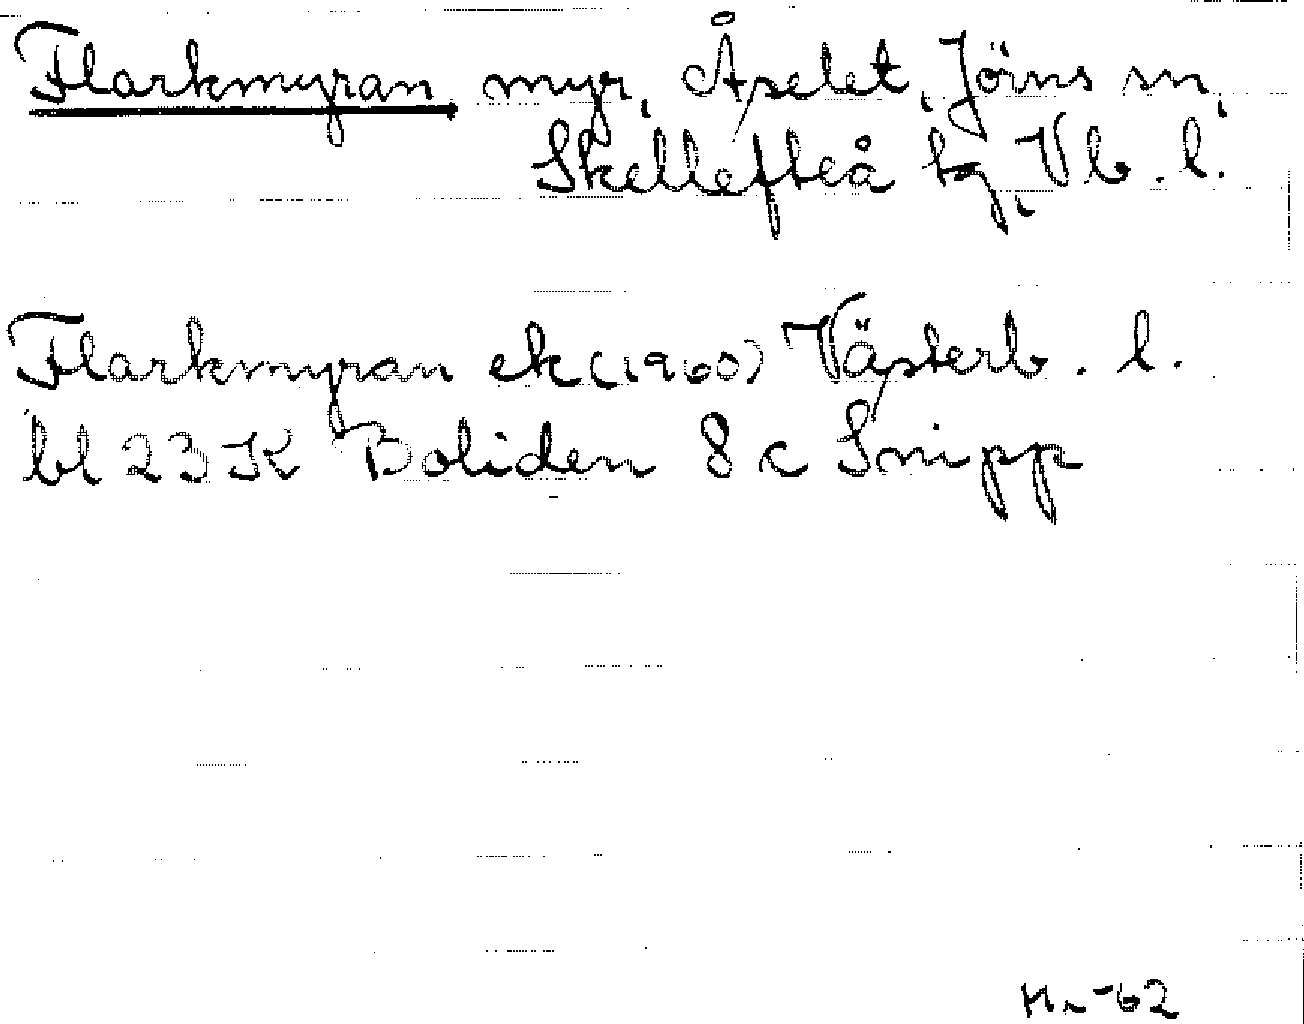 Flarkmyran myr, Åselet, Jörns sn,
Skellefteå tg, Vb. l.
Flarkmyran ek (1960) Västerb. l.
bl 23 K Boliden 8 c Snipp
-62